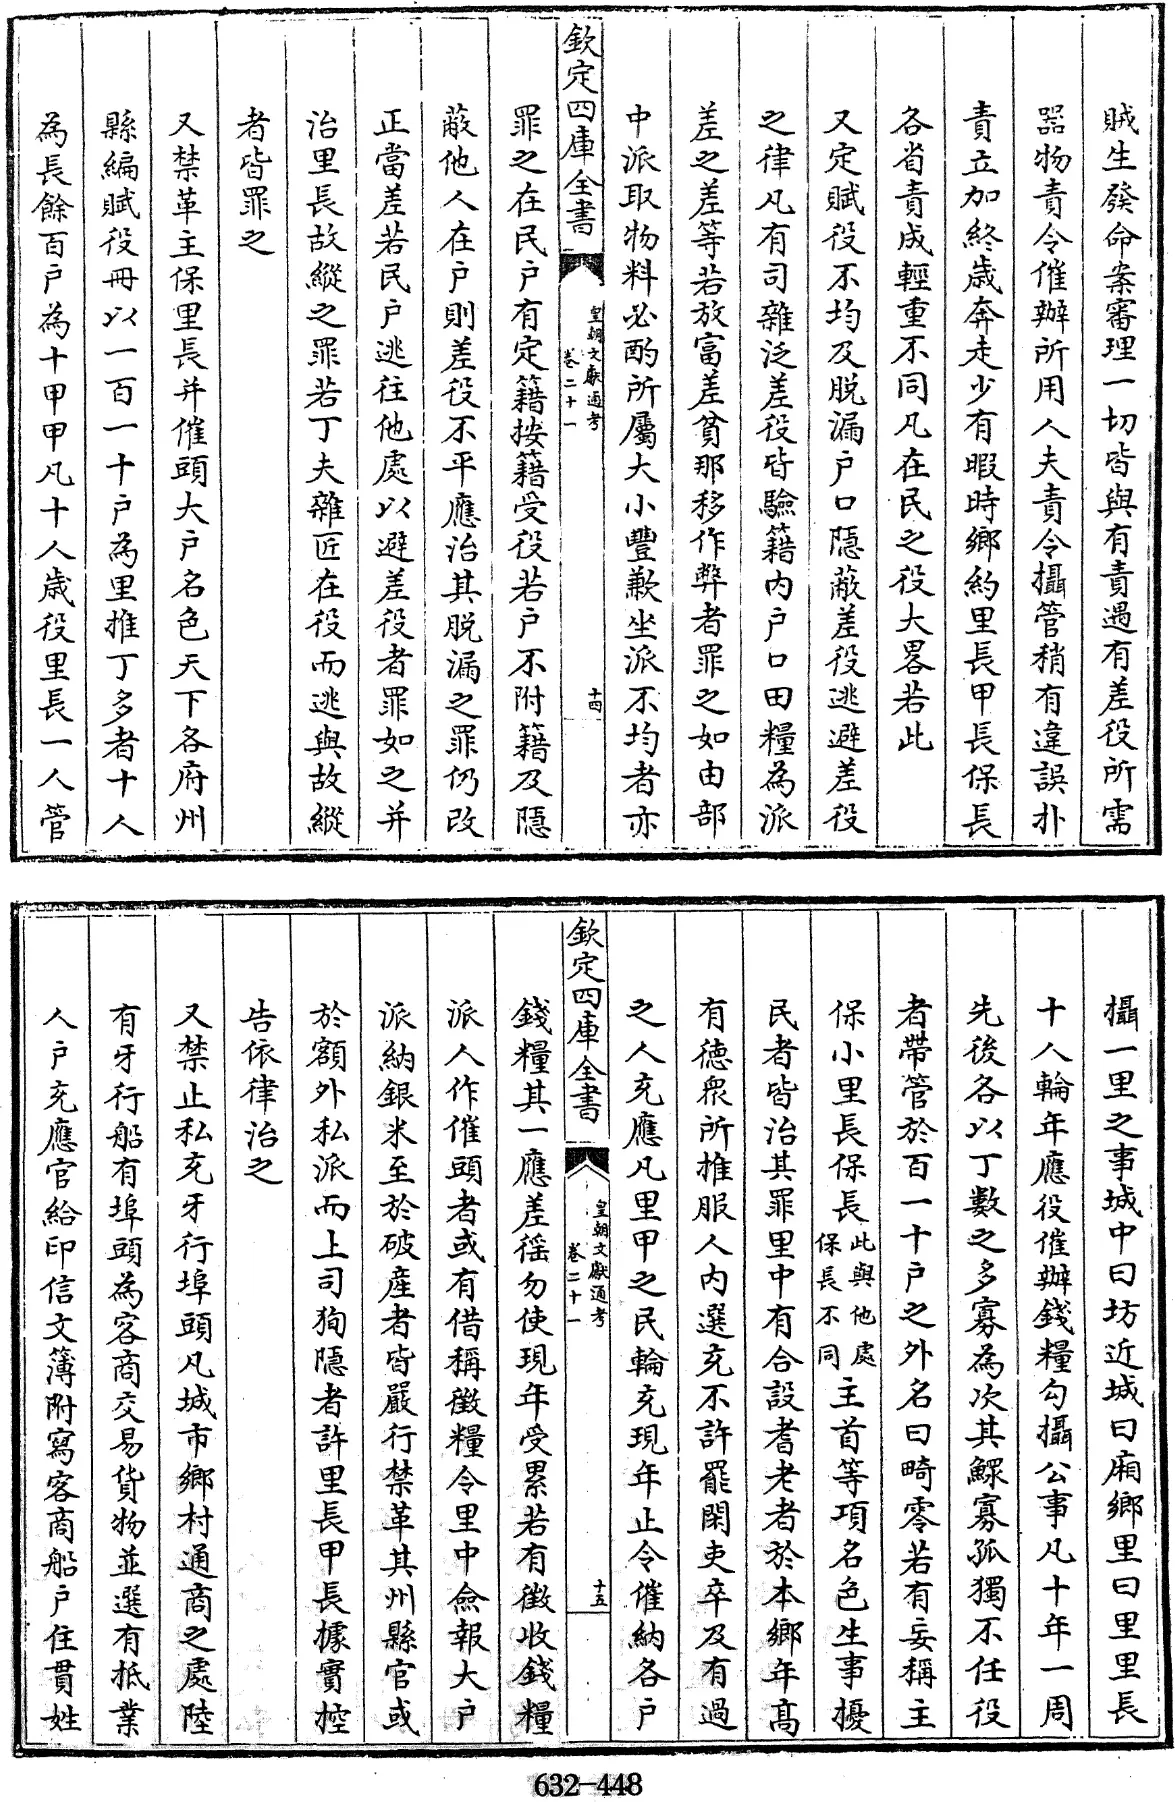 賊生發命案審理一切皆與有責遇有差役所需
器物責令催辦所用人夫責令攝管稍有違誤扑
責立加終歲奔走少有暇時鄉約里長甲長保長
各省責成輕重不同凡在民之役大畧若此
又定賦役不均及脱漏户口隠蔽差役逃避差役
之律凡有司雜泛差役皆驗籍内户口田糧為派
差之差等若放富差貧那移作弊者罪之如由部
中派取物料必酌所屬大小豐歉坐派不均者亦
欽定四庫全書
皇朝文獻通考
卷二十一
十四
罪之在民户有定籍按籍受役若户不附籍及隠
蔽他人在户則差役不平應治其脱漏之罪仍改
正當差若民户逃往他處以避差役者罪如之并
治里長故縱之罪若丁夫雜匠在役而逃與故縱
者皆罪之
又禁革主保里長并催頭大户名色天下各府州
縣編賦役冊以一百一十户為里推丁多者十人
為長餘百户為十甲甲凡十人歲役里長一人管
攝一里之事城中曰坊近城曰廂鄉里曰里里長
十人輪年應役催辦錢糧勾攝公事凡十年一周
先後各以丁數之多寡為次其鰥寡孤獨不任役
者帶管於百一十户之外名曰畸零若有妄稱主
保小里長保長此與他處保長不同主首等項名色生事擾
民者皆治其罪里中有合設耆老者於本鄉年高
有德衆所推服人内選充不許罷閑吏卒及有過
之人充應凡里甲之民輪充現年止令催納各户
欽定四庫全書
皇朝文獻通考
卷二十一
十五
錢糧其一應差徭勿使現年受累若有徵收錢糧
派人作催頭者或有借稱徵糧令里中僉報大户
派納銀米至於破産者皆嚴行禁革其州縣官或
於額外私派而上司狥隠者許里長甲長據實控
告依律治之
又禁止私充牙行埠頭凡城市鄉村通商之處陸
有牙行船有埠頭為客商交易貨物並選有抵業
人户充應官給印信文簿附寫客商船户住貫姓
632-448